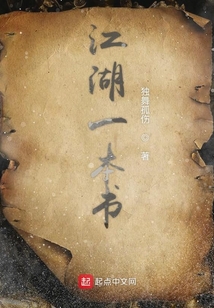 江湖一本书
独舞孤伤 著
起点
起点中文网